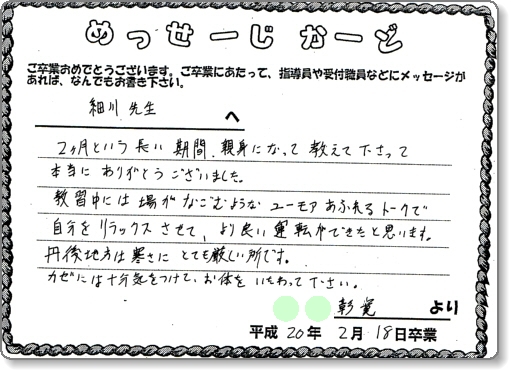 めっせーじかーど
ご卒業おめでとうございます。ご卒業にあたって、指導員や受付職員などにメッセージが
あれば、なんでもお書き下さい。
細川 先生 へ
2ヶ月という長い期間、親身になって教えて下さって
本当にありがとうございました。
教習中には場がなごむようなユーモアあふれるトークで
自分をリラックスさせて、より良い運転ができたと思います。
丹後地方は寒さにとても厳しい所です。
カゼには十分気をつけて、お体をいたわって下さい。
彰寛 より
平成 20年 2月 18日卒業